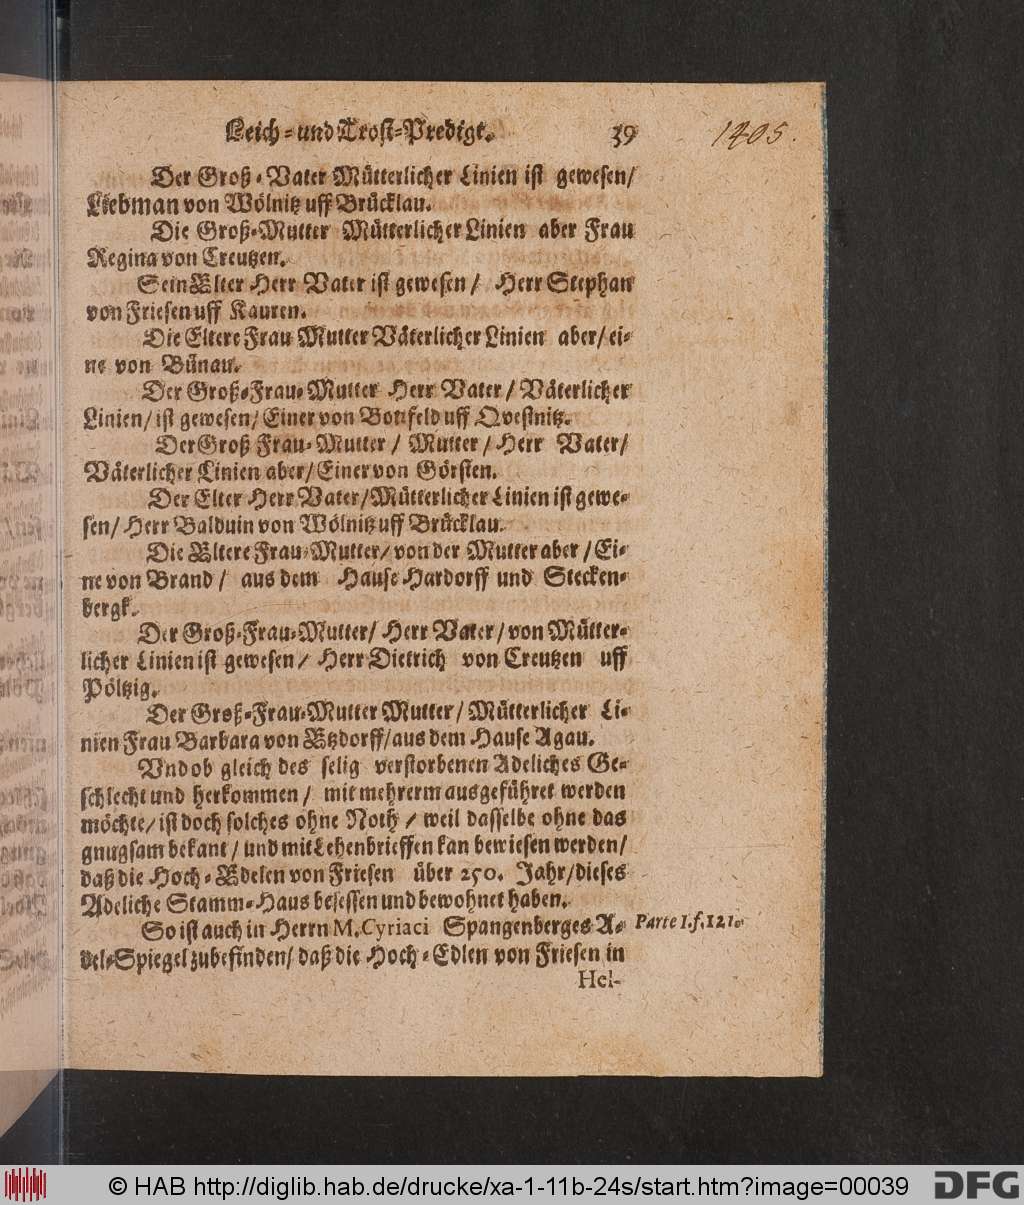 Leich-und Trost-Predigt. 39 1405.
Der Groß-Vater Mütterlicher Linien ist gewesen/
Liebman von Wölnitz uff Brücklau.
Die Groß-Mutter Mütterlicher Linien aber Frau
Regina von Creutzen.
Sein Elter Herr Vater ist gewesen/ Herr Stephan
von Friesen uff Kauren.
Die Eltere Frau Mutter Väterlicher Linien aber/ ei-
ne von Bünau.
Der Groß-Frau-Mutter Herr Vater/ Väterlicher
Linien/ ist gewesen/ Einer von Bonfeld uff Qvestnitz.
Der Groß Frau-Mutter/ Mutter/ Herr Vater/
Väterlicher Linien aber/ Einer von Görsten.
Der Elter Herr Vater/ Mütterlicher Linien ist gewe-
sen/ Herr Balduin von Wölnitz uff Brücklau.
Die Eltere Frau-Mutter/ von der Mutter aber/ Ei-
ne von Brand/ aus dem Hause Hardorff und Stecken-
bergk.
Der Groß-Frau-Mutter/ Herr Vater/ von Mütter-
licher Linien ist gewesen/ Herr Dietrich von Creutzen uff
Pöltzig.
Der Groß-Frau-Mutter Mutter/ Mütterlicher Li-
nien Frau Barbara von Etzdorff/ aus dem Hause Agau.
Vnd ob gleich des selig verstorbenen Adeliches Ge-
schlecht und herkommen/ mit mehrerm ausgeführet werden
möchte/ ist doch solches ohne Noth/ weil dasselbe ohne das
gnugsam bekant/ und mit Lehenbrieffen kan bewiesen werden/
daß die Hoch-Edelen von Friesen über 250. Jahr/ dieses
Adeliche Stamm-Haus besessen und bewohnet haben.
So ist auch in Herrn M. Cyriaci Spangenberges A- Parte I. f. 121.
del-Spiegel zubefinden/ daß die Hoch-Edlen von Friesen in
Hel-
© HAB http://diglib.hab.de/drucke/xa-1-11b-24s/start.htm?image=00039 DFG